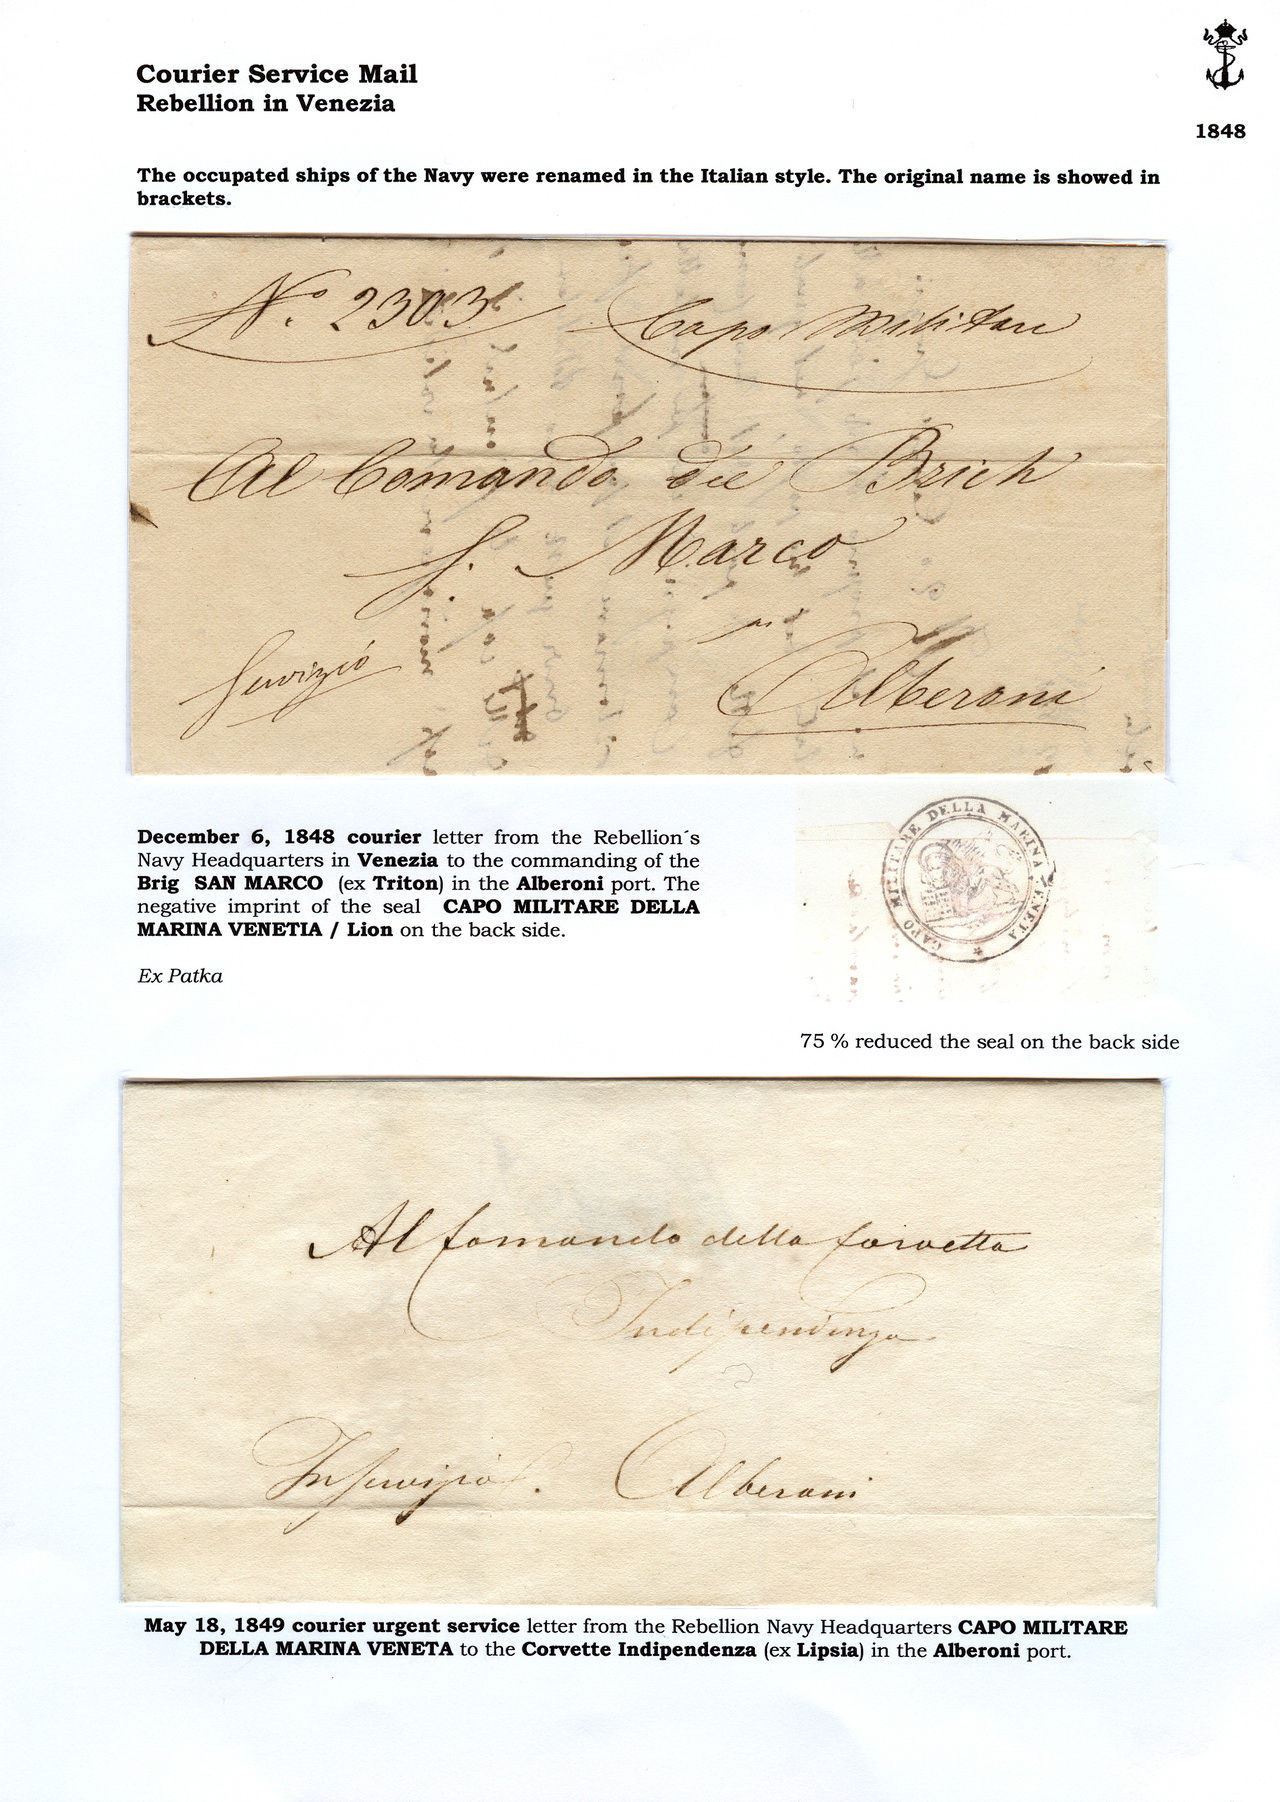 Courier Service Mail
Rebellion in Venezia
1848
The occupated ships of the Navy were renamed in the Italian style. The original name is showed in
brackets.
No. 2303 Capo Militare
Al Comando del Brich
S. Marco
in
Servizio Alberoni
December 6, 1848 courier letter from the Rebellion´s
Navy Headquarters in Venezia to the commanding of the
Brig SAN MARCO (ex Triton) in the Alberoni port. The
negative imprint of the seal CAPO MILITARE DELLA
MARINA VENETIA / Lion on the back side.
Ex Patka
CAPO MILITARE DELLA MARINA VENETA
75 % reduced the seal on the back side
Al Comando della Corvetta
Indipendenza
In Servizio. Alberoni
May 18, 1849 courier urgent service letter from the Rebellion Navy Headquarters CAPO MILITARE
DELLA MARINA VENETA to the Corvette Indipendenza (ex Lipsia) in the Alberoni port.